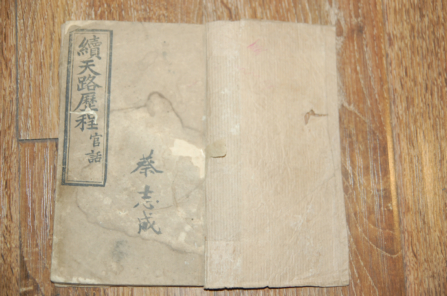 續天路歷程官話
蔡志成